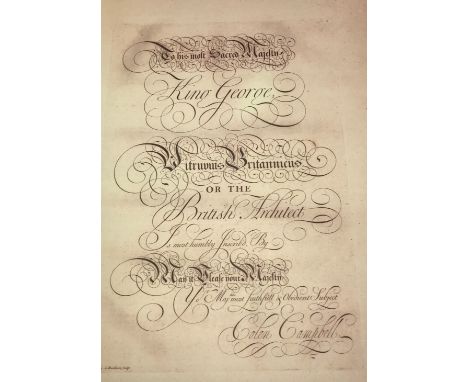 To his most Sacred Majesty
King George
Vitruvius Britannicus
OR THE
British Architect
Is most humbly Inscrib'd, By
May it Please your Majesty
Yor. Majties. most faithfull & Obedient Subject
Colen Campbell.